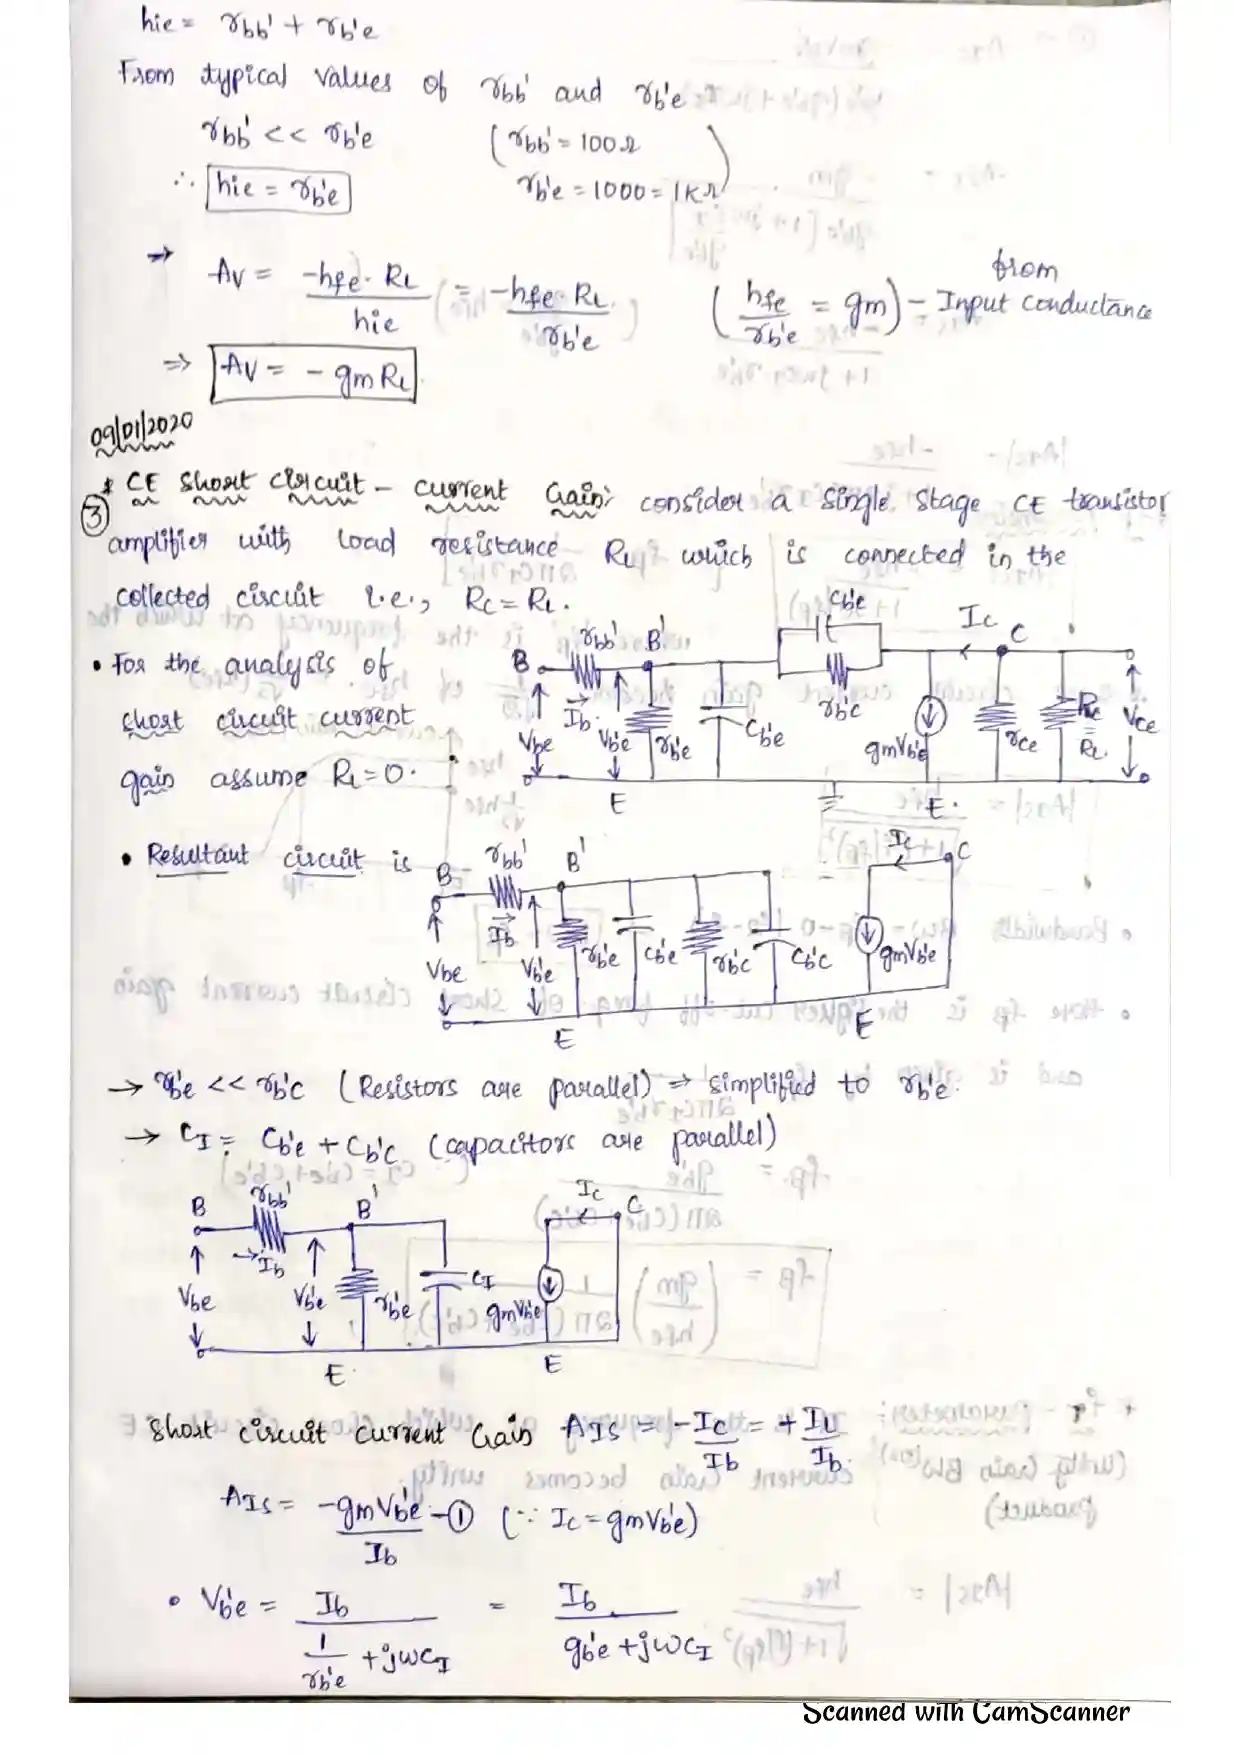 hie = rbb' + rb'e
From typical values of rbb' and rb'e
rbb' << rb'e (rbb' = 100Ω
∴ hie = rb'e rb'e = 1000 = 1KΩ)
→ Av = -hfe. RL / hie = -hfe. RL / rb'e (hfe / rb'e = gm) - from Input conductance
⇒ Av = - gm RL
09/01/2020
③ * CE short circuit - current Gain: consider a single stage CE transistor
amplifier with load resistance RL which is connected in the
collected circuit i.e., Rc = RL.
• For the analysis of
short circuit current
gain assume RL = 0.
B rbb' B' Cb'e Ic C
Ib rb'c
Vbe Vb'e rb'e Cb'e gmVb'e rce Rc = RL Vce
E E.
• Resultant circuit is
B rbb' B' Ic C
Ib rb'e Cb'e rb'c Cb'c gmVb'e
Vbe Vb'e
E E
→ rb'e << rb'c (Resistors are parallel) ⇒ simplified to rb'e.
→ CI = Cb'e + Cb'c (capacitors are parallel)
B rbb' B' Ic C
Ib CI
Vbe Vb'e rb'e gmVb'e
E. E
Short circuit current Gain AIS = -Ic / Ib = + IL / Ib.
AIS = -gmVb'e / Ib - ① (∵ Ic = gmVb'e)
• Vb'e = Ib / (1 / rb'e + jωCI) = Ib / (gb'e + jωCI)
Scanned with CamScanner